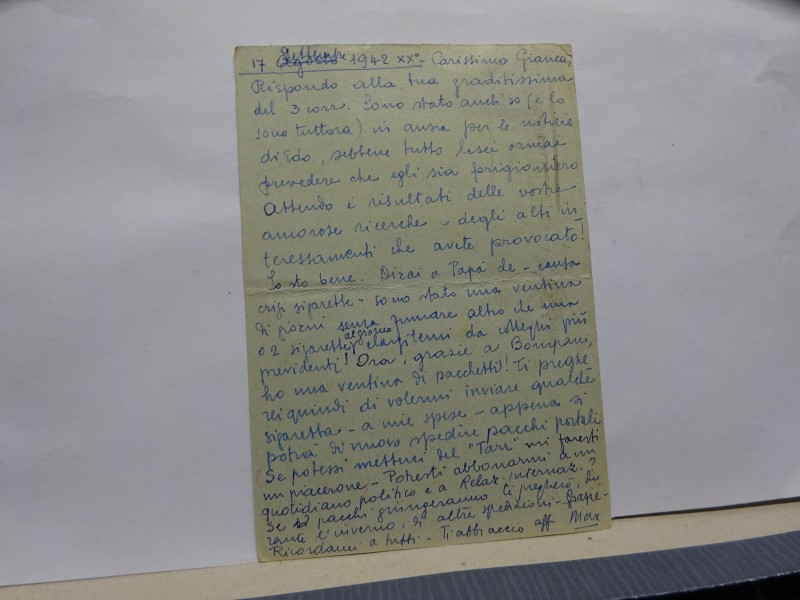 17 Settembre 1942 XX° - Carissimo Gianca,
Rispondo alla tua graditissima
del 3 corr. Sono stato anch'io (e lo
sono tuttora) in ansia per le notizie
di Edo, sebbene tutto lasci ormai
prevedere che egli sia prigioniero
Attendo i risultati delle vostre
amorose ricerche e degli alti in
teressamenti che avete provocato!
Io sto bene. Dirai a Papà che - causa
crisi sigarette - sono stato una ventina
di giorni senza fumare altro che una
o 2 sigarette al giorno elargitemi da colleghi più
previdenti! Ora, grazie a Bompani,
ho una ventina di pacchetti! Ti preghe
rei quindi di volermi inviare qualche
sigaretta - a mie spese - appena si
potrà di nuovo spedire pacchi postali
(Se potessi metterci del "Tarr" mi faresti
un piacerone - Potresti abbonarmi a un
quotidiano politico e a Relaz. Internaz.?
Se i pacchi giungeranno ti pregherò, du
rante l'inverno, di altre spedizioni - Grazie -
Ricordami a tutti - Ti abbraccio aff Max